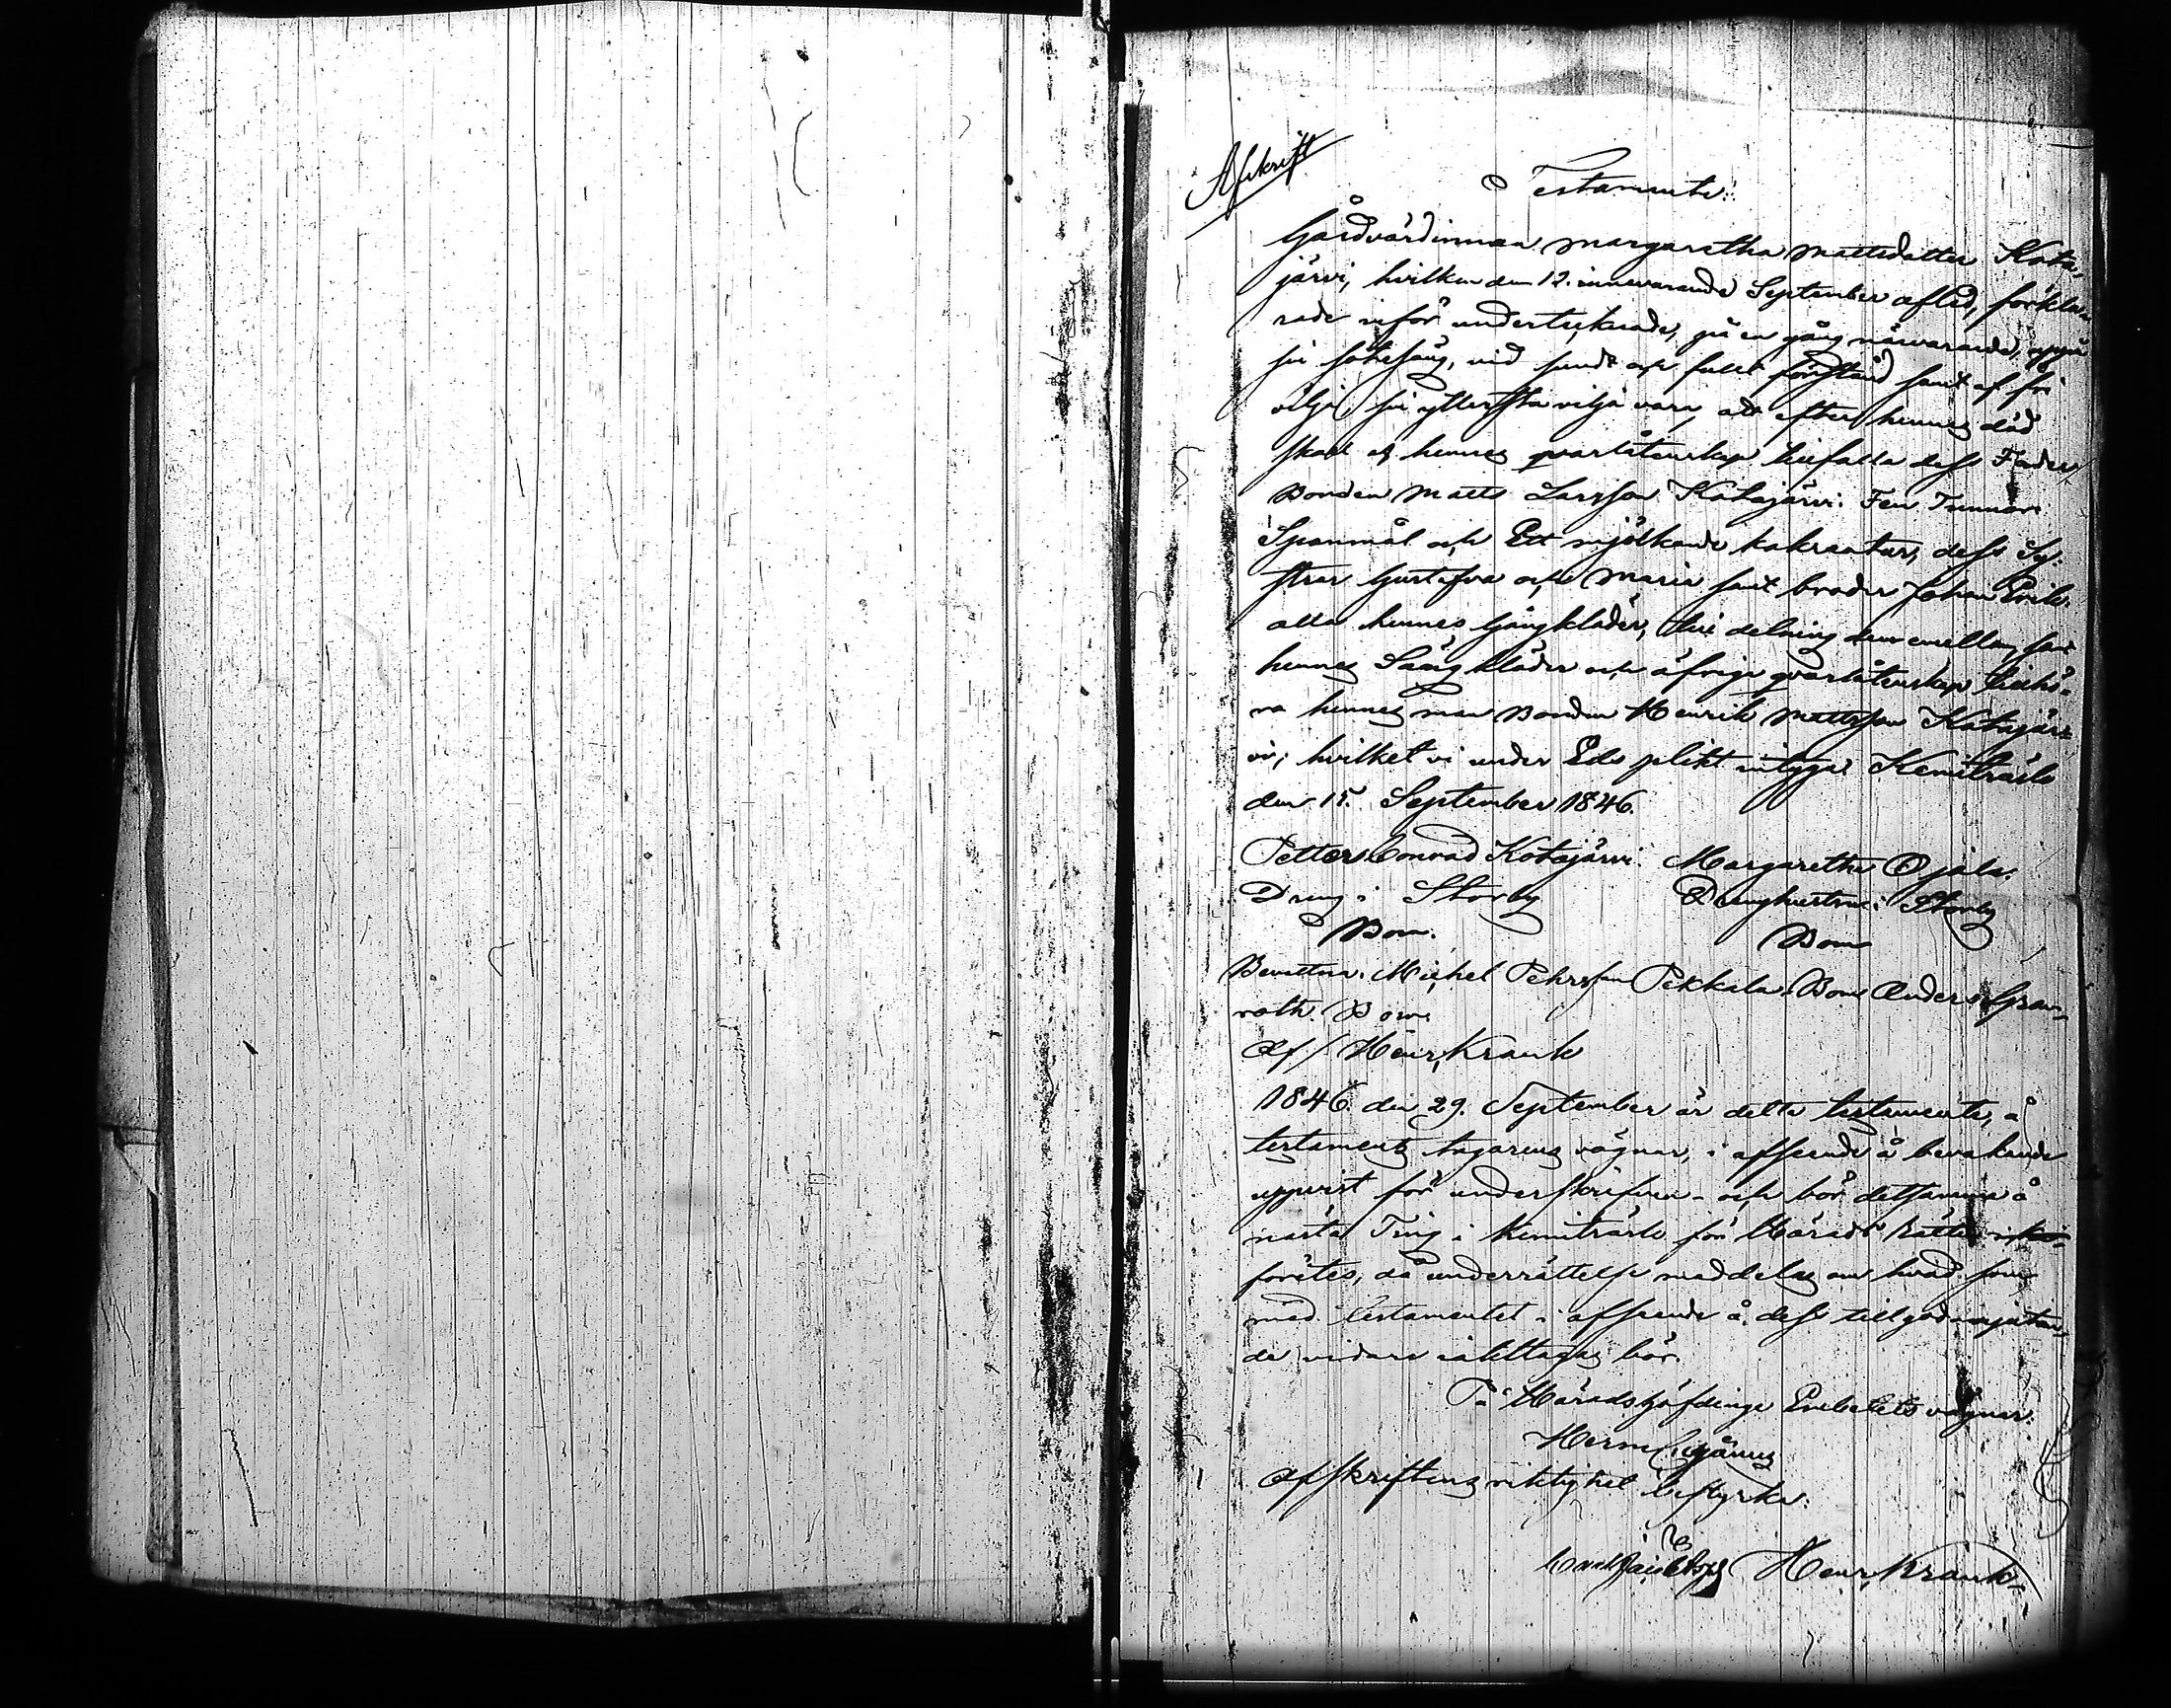 Afskrift
Testamente:
Gårdvärdinnan Margaretha Mattsdotter Kota-
järvi, hvilken den 12. innevarande September afled, förkla-
rade inför undertecknade, på en gång närvarande, uppå
sin sotesäng, vid sundt och fullt förstånd samt af fri
vilja sin yttersta vilja vara, att efter hennes död
skall af hennes qvarlåtenskap tillfalla dess Fader
Bonden Matts Larsson Kotajärvi: Fem Tunnor
Spanmål och Ett mjölkande kokreatur, dess Sy-
strar Gustafva och Maria samt broder Johan Erik
alla hennes Gångkläder, till delning dem emellan, samt
hennes Sängkläder och öfrige qvarlåtenskap tillhö-
ra hennes man Bonden Henrik Mattsson Kotajär-
vi; hvilket vi under Eds plikt intyga. Kemiträsk
den 15. September 1846.
Petter Conrad Kotajärvi. Margaretha Ojala.
Dreng i Storby Drenghustru i Storby
Bom. Bom
Bevittna. Michel Pehrsson Pekkala. Bom. Anders Gran-
roth. Bom.
Af/ Henr. Krank
1846 den 29. September är detta testamente, å
testaments tagarens vägnar, i afseende å bevakande
uppvist för underskrifven - och bör detsamma å
nästa Ting i Kemiträsk för Härads Rätten
företes, då underrättelse meddelas om hvad som
med testamentet i afseende å dess tillgodonjutan-
de vidare iakttagas bör.
På Häradshöfdinge Embetets vägnar.
Herm.
Afskriftens riktighet bestyrka:
Henr. Krank